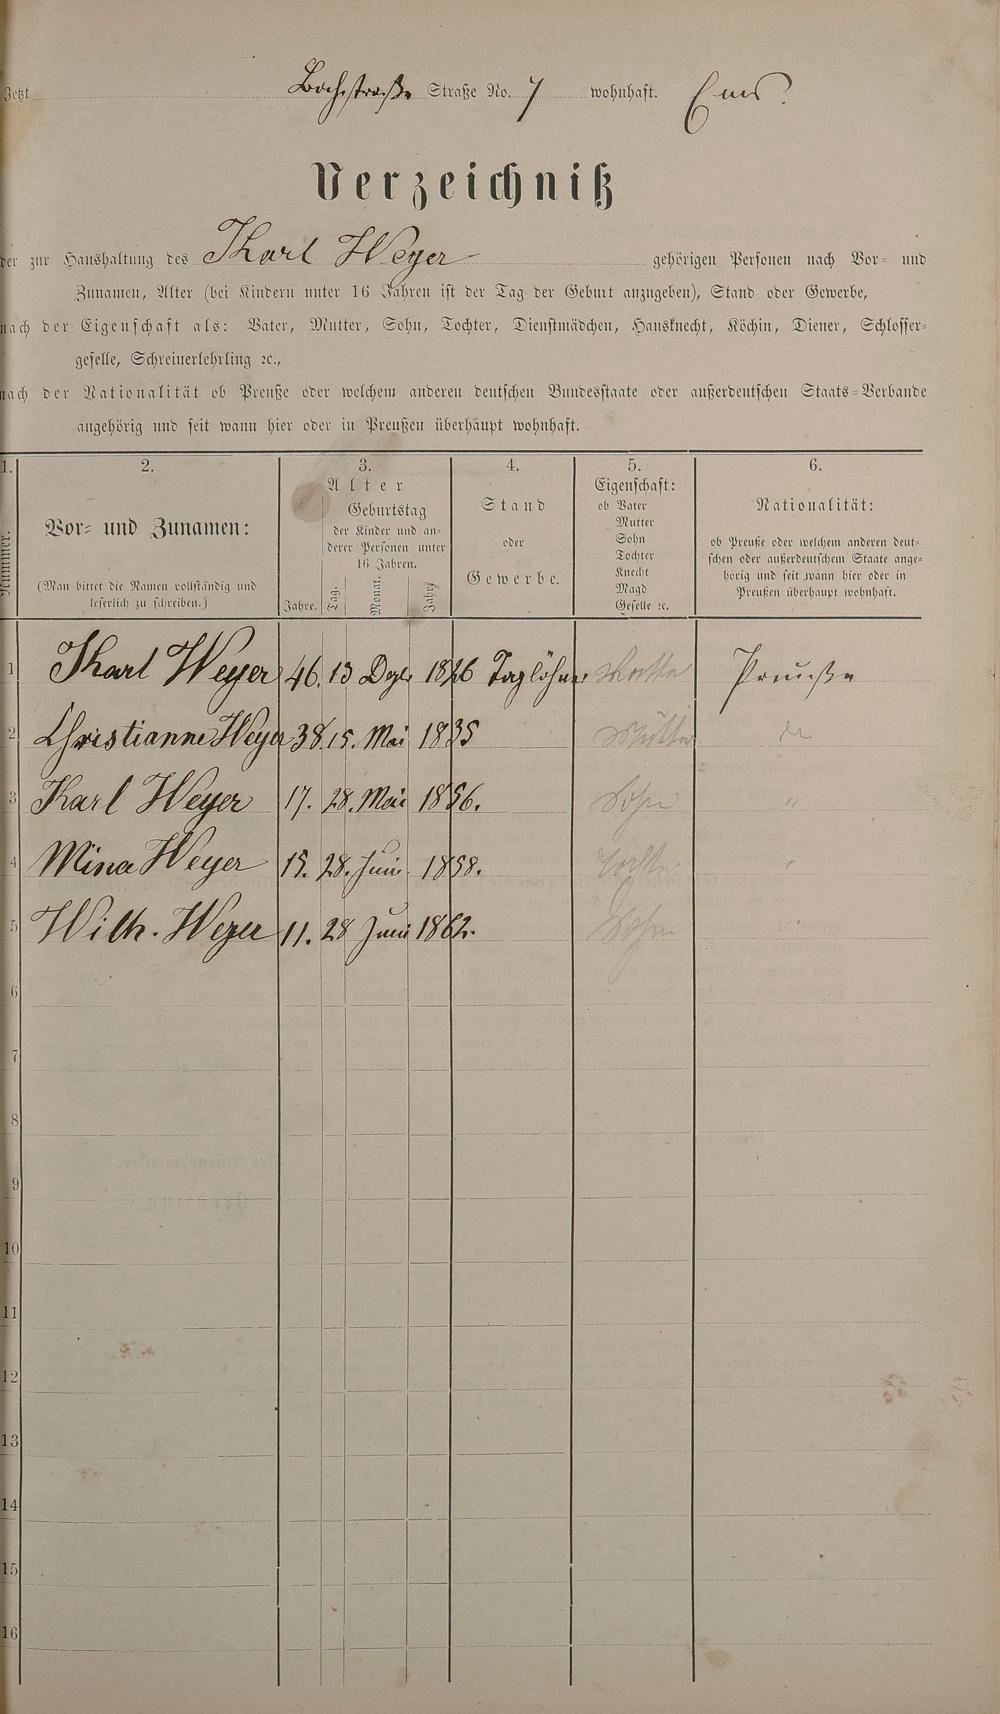 Jetzt Bachstraße Straße No. 7 wohnhaft. Ems.
Verzeichniß
der zur Haushaltung des Karl Weyer gehörigen Personen nach Vor- und
Zunamen, Alter (bei Kindern unter 16 Jahren ist der Tag der Geburt anzugeben), Stand oder Gewerbe,
nach der Eigenschaft als: Vater, Mutter, Sohn, Tochter, Dienstmädchen, Hausknecht, Köchin, Diener, Schlosser-
geselle, Schreinerlehrling ꝛc.,
nach der Nationalität ob Preuße oder welchem anderen deutschen Bundesstaate oder außerdeutschen Staats-Verbande
angehörig und seit wann hier oder in Preußen überhaupt wohnhaft.
1. 2. 3. 4. 5. 6.
Nummer.
Vor- und Zunamen:
(Man bittet die Namen vollständig und
leserlich zu schreiben.)
Alter
Geburtstag
der Kinder und an-
derer Personen unter
16 Jahren.
Jahre. Tag. Monat. Jahr.
Stand
oder
Gewerbe.
Eigenschaft:
ob Vater
Mutter
Sohn
Tochter
Knecht
Magd
Geselle ꝛc.
Nationalität:
ob Preuße oder welchem anderen deut-
schen oder außerdeutschem Staate ange-
hörig und seit wann hier oder in
Preußen überhaupt wohnhaft.
1 Karl Weyer 46. 13 1826 Taglöhner Preuße
2 Christianne Weyer 38. 15. Mai 1835 Mutter
3 Karl Weyer 17. 28. Mai 1856. Sohn "
4 Mina Weyer 15. 28. Juni 1858. Tochter "
5 Wilh. Weyer 11. 28 Juni 1862. Sohn "
6
7
8
9
10
11
12
13
14
15
16